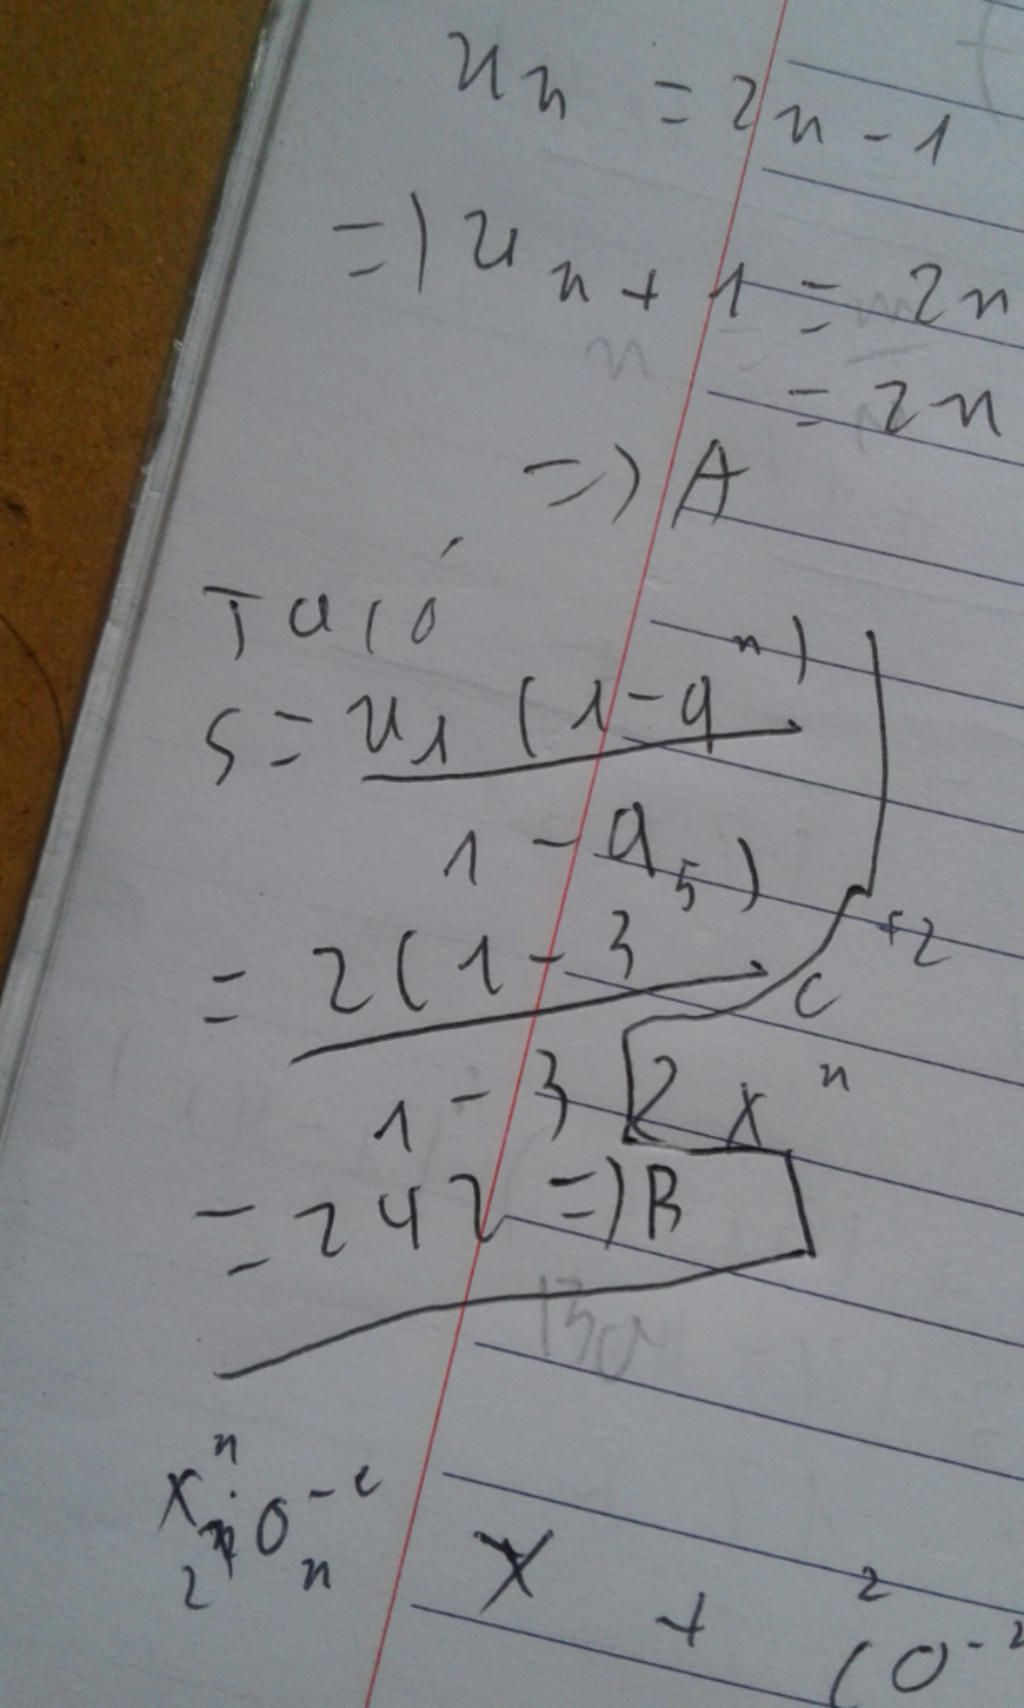 un = 2n - 1
=) un + 1 = 2n
= 2n
=) A
Ta có
S = u1 (1 - q^n)
1 - q
= 2 (1 - 3^5)
1 - 3
= 242 =) B
+2
C
2 x^n
x
+
2
(0^-2